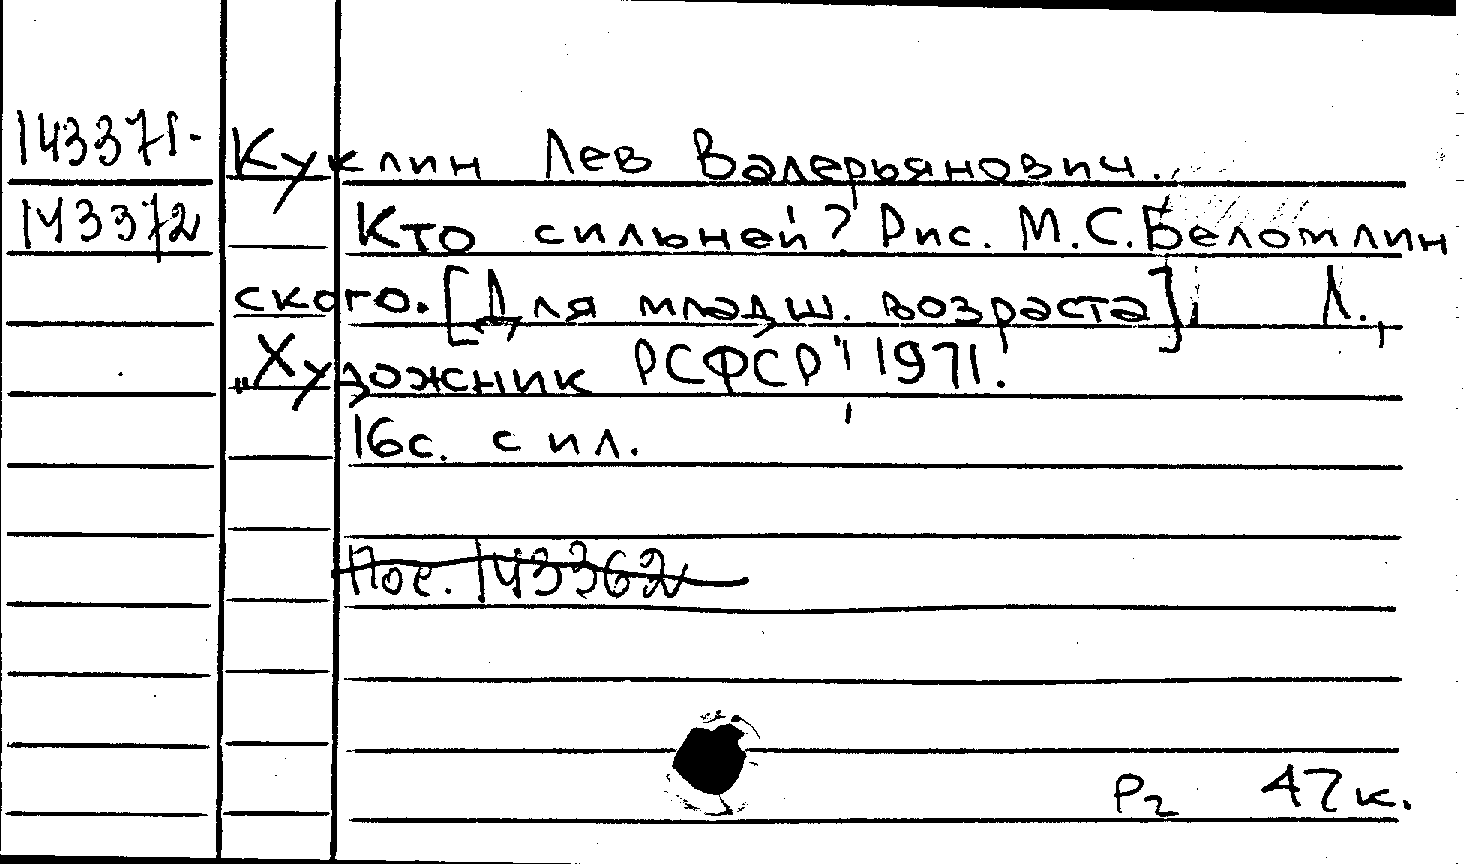 143371- Куклин Лев Валерьянович.
143372 Кто сильней? Рис. М.С.Беломлин
ского. [Для младш. возраста] Л.,
„Художник РСФСР" 1971.
16с. с ил.
Пос. 143362
Р2 47к.